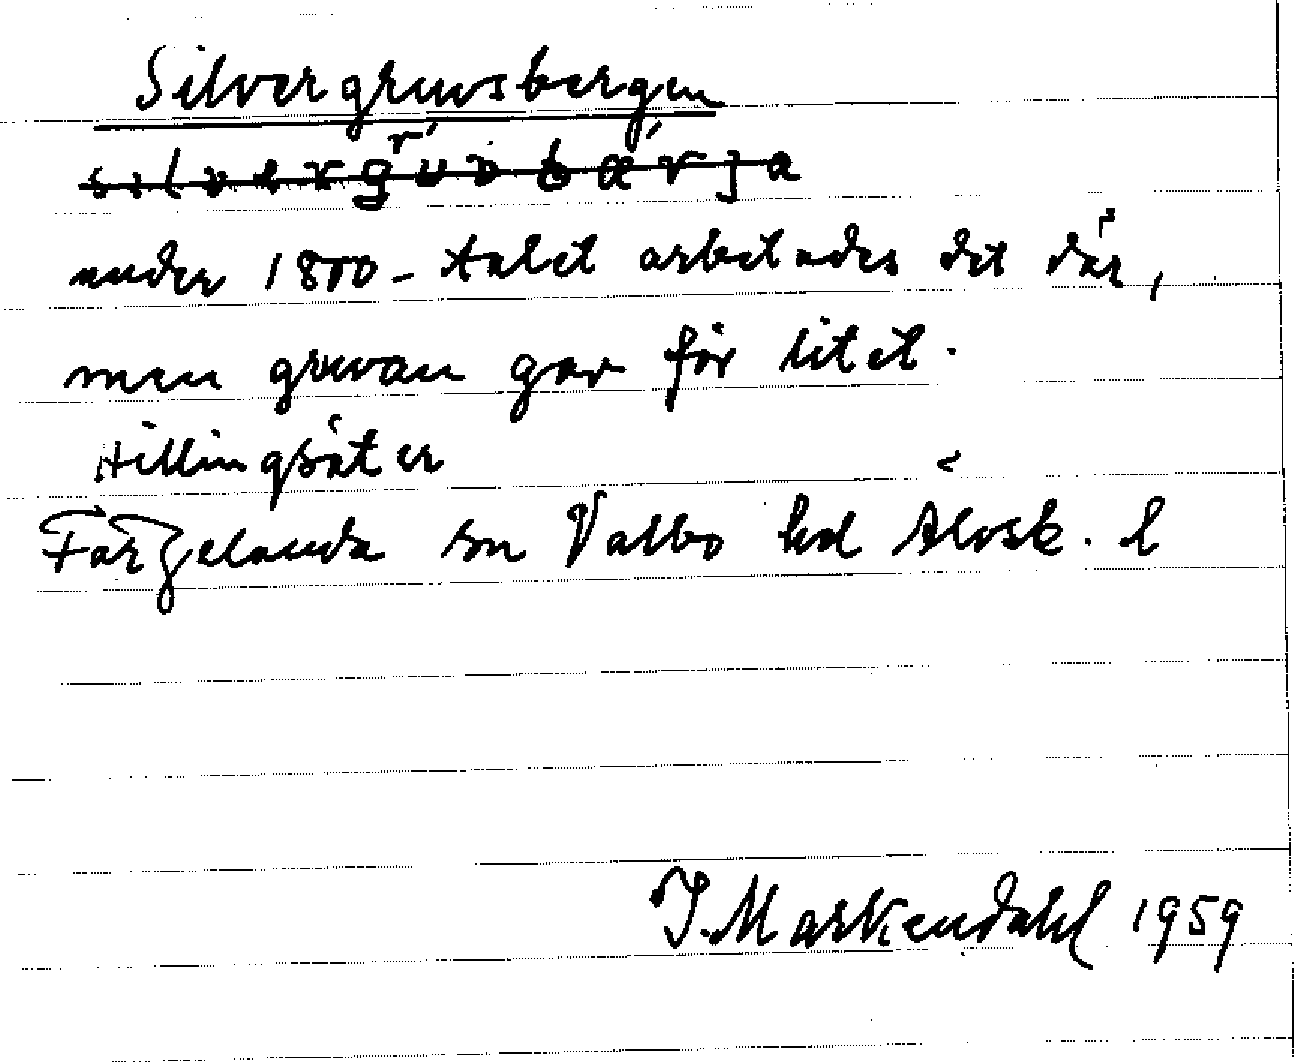 Silvergruvsbergen
silvergrúvbǽrja
under 1800-talet arbetades det där,
men gruvan gav för litet.
Hillingsäter
Färgelanda sn Valbo hd Älvsb. l
J. Markendahl 1959